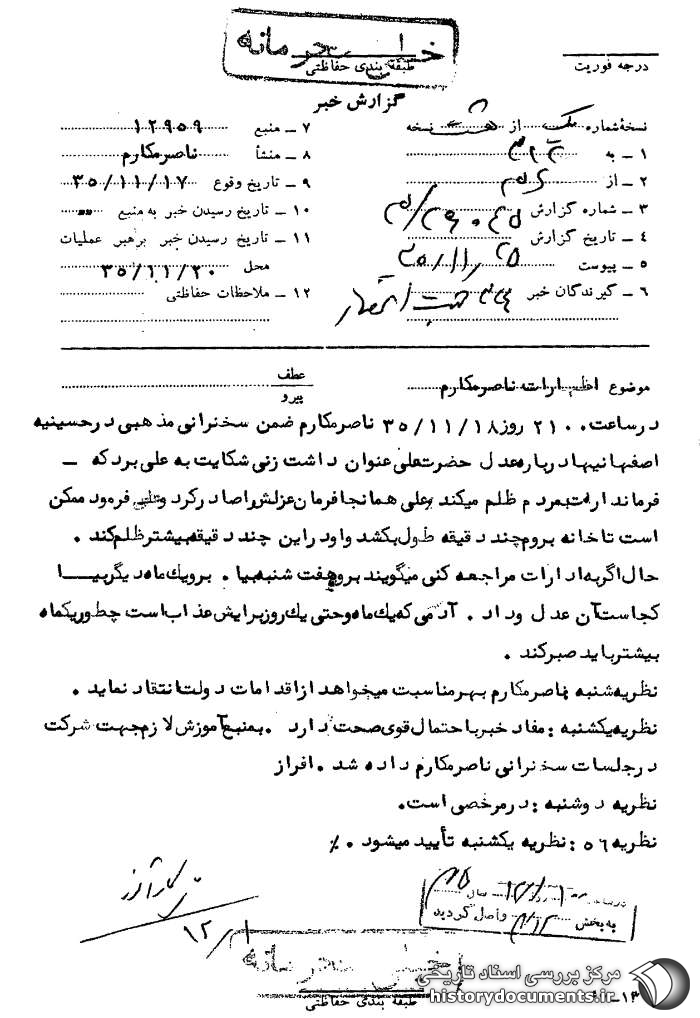 خیلی محرمانه
طبقه بندی حفاظتی
درجه فوریت
گزارش خبر
نسخهٔ شماره یک از هشت نسخه
۱ ـ به ۳۱۲
۲ ـ از
۳ ـ شماره گزارش
۴ ـ تاریخ گزارش
۵ ـ پیوست
۶ ـ گیرندگان خبر
۷ ـ منبع ۱۲۹۵۹
۸ ـ منشأ ناصرمکارم
۹ ـ تاریخ وقوع ۳۵/۱۱/۱۷
۱۰ ـ تاریخ رسیدن خبر به منبع ""
۱۱ ـ تاریخ رسیدن خبر برهبر عملیات
محل ۳۵/۱۱/۲۰
۱۲ ـ ملاحظات حفاظتی
موضوع اظهارات ناصرمکارم
عطف
پیرو
در ساعت ۲۱۰۰ روز ۳۵/۱۱/۱۸ ناصرمکارم ضمن سخنرانی مذهبی در حسینیه
اصفهانیها درباره عدل حضرت علی عنوان داشت زنی شکایت به علی برد که ـ
فرماندارت بمردم ظلم میکند وعلی همانجا فرمان عزلش را صادر کرد و فرمود ممکن
است تا خانه بروم چند دقیقه طول بکشد واو در این چند دقیقه بیشتر ظلم کند .
حال اگر به ادارات مراجعه کنی میگویند برو هفت شنبه بیا . برو یك ماه دیگر بیا
کجاست آن عدل وداد . آدمی که یك ماه وحتی یك روز برایش عذاب است چطور یکماه
بیشتر باید صبر کند .
نظریه شنبه ناصرمکارم بهر مناسبت میخواهد از اقدامات دولت انتقاد نماید .
نظریه یکشنبه : مفاد خبر با احتمال قوی صحت دارد . به منبع آموزش لازم جهت شرکت
در جلسات سخنرانی ناصرمکارم داده شد . افراز
نظریه دوشنبه : در مرخصی است.
نظریه ۵۶ : نظریه یکشنبه تأیید میشود . ٪
در ساعت روز سال
به بخش ۳۱۲ واصل گردید
خیلی محرمانه
طبقه بندی حفاظتی
مرکز بررسی اسناد تاریخی
historydocuments.ir